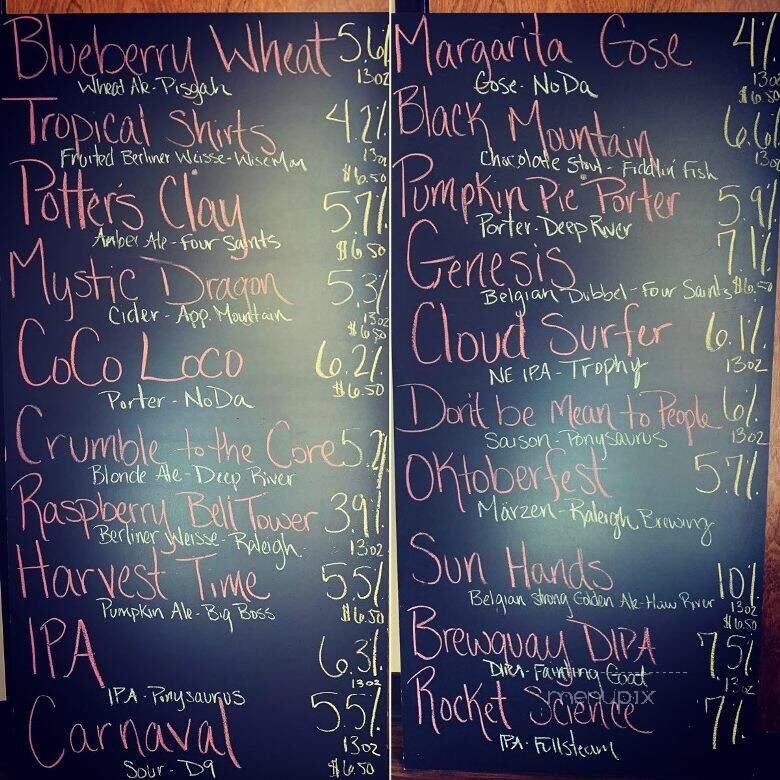 Blueberry Wheat 5.6%
13oz
Wheat Ale - Pisgah
Tropical Shirts 4.2%
Fruited Berliner Weisse - Wise Man 13oz
$6.50
Potter's Clay 5.7%
Amber Ale - Four Saints $6.50
Mystic Dragon 5.3%
Cider - App. Mountain 13oz
$6.50
CoCo Loco 6.2%
Porter - NoDa $6.50
Crumble to the Core 5.2%
Blonde Ale - Deep River
Raspberry Bell Tower 3.9%
Berliner Weisse - Raleigh 13oz
Harvest Time 5.5%
Pumpkin Ale - Big Boss $6.50
IPA 6.3%
IPA - Ponysaurus 13oz
Carnaval 5.5%
13oz
Sour - D9 $6.50
Margarita Gose 4%
Gose - NoDa 13oz
$6.50
Black Mountain 6.6%
Chocolate Stout - Fiddlin' Fish 13oz
Pumpkin Pie Porter 5.9%
Porter - Deep River
Genesis 7.1%
Belgian Dubbel - Four Saints $6.50
Cloud Surfer 6.1%
NE IPA - Trophy 13oz
Don't be Mean to People 6%
Saison - Ponysaurus 13oz
Oktoberfest 5.7%
Märzen - Raleigh Brewing
Sun Hands 10%
Belgian Strong Golden Ale - Haw River 13oz
$6.50
Brewquay DIPA 7.5%
DIPA - Fainting Goat 13oz
menupix
Rocket Science 7%
IPA - Fullsteam